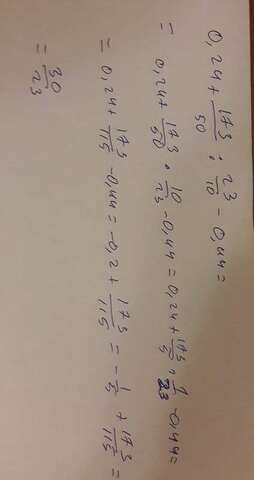 0,24 + 173/50 : 23/10 - 0,44 =
= 0,24 + 173/50 · 10/23 - 0,44 = 0,24 + 173/5 · 1/23 - 0,44 =
= 0,24 + 173/115 - 0,44 = -0,2 + 173/115 = -1/5 + 173/115 =
= 30/23